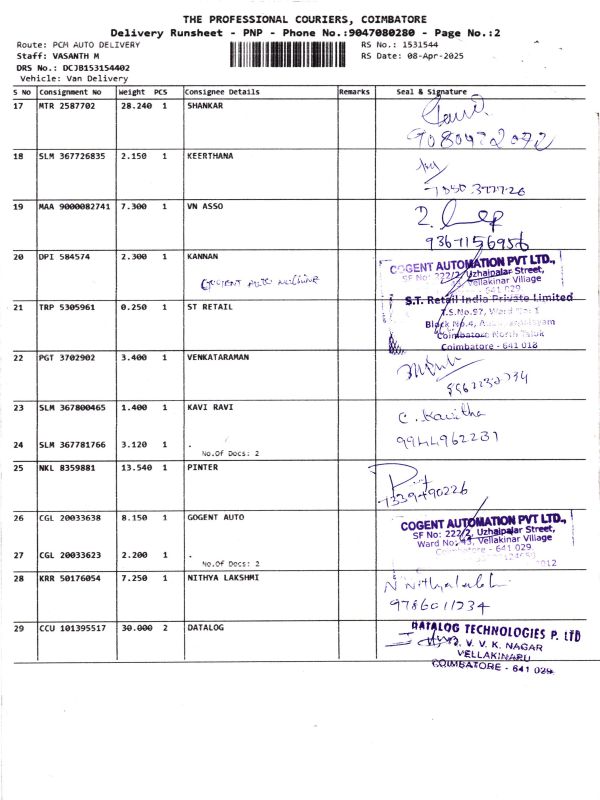 THE PROFESSIONAL COURIERS, COIMBATORE
Delivery Runsheet - PNP - Phone No.:9047080280 - Page No.:2
Route: PCM AUTO DELIVERY
RS No.: 1531544
Staff: VASANTH M
RS Date: 08-Apr-2025
DRS No.: DCJB153154402
Vehicle: Van Delivery
S No Consignment No Weight PCS Consignee Details Remarks Seal & Signature
17 MTR 2587702 28.240 1 SHANKAR
18 SLM 367726835 2.150 1 KEERTHANA
19 MAA 9000082741 7.300 1 VN ASSO
9367156956
20 DPI 584574 2.300 1 KANNAN
COGENT AUTOMATION PVT LTD.,
SF No: 222/2, Uzhaipalar Street,
Vellakinar Village
641 029
21 TRP 5305961 0.250 1 ST RETAIL
S.T. Retail India Private Limited
T.S.No.97, Ward No: 1
Block No.4,
Coimbatore North Taluk
Coimbatore - 641 018
22 PGT 3702902 3.400 1 VENKATARAMAN
23 SLM 367800465 1.400 1 KAVI RAVI
C. Kavitha
9944962231
24 SLM 367781766 3.120 1 .
No.Of Docs: 2
25 NKL 8359881 13.540 1 PINTER
7339490226
26 CGL 20033638 8.150 1 GOGENT AUTO
COGENT AUTOMATION PVT LTD.,
SF No: 222/2, Uzhaipalar Street,
Ward No: 43, Vellakinar Village
Coimbatore - 641 029.
27 CGL 20033623 2.200 1 .
No.Of Docs: 2
28 KRR 50176054 7.250 1 NITHYA LAKSHMI
9786011234
29 CCU 101395517 30.000 2 DATALOG
DATALOG TECHNOLOGIES P. LTD
V. V. K. NAGAR
VELLAKINARU
COIMBATORE - 641 029.